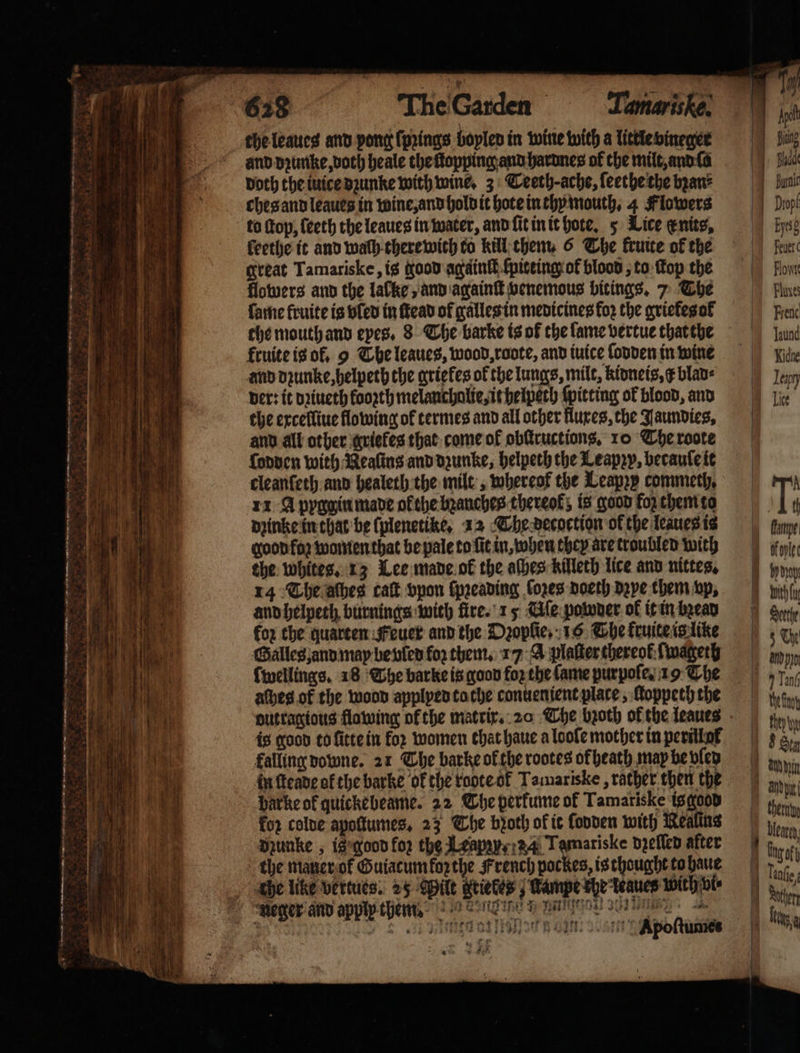 628 The Garden Tamariske.
the leaues and yong springs boyled in wine with a little vineger
and drunke, doth heale the stopping and hardnes of the milt, and so
doth the iuice drunke with wine, 3 Teeth-ache, seethe the bran-
ches and leaues in wine, and hold it hote in thy mouth, 4 Flowers
to stop, seeth the leaues in water, and sit in it hote, 5 Lice & nits,
seethe it and wash therewith to kill them, 6 The fruite of the
great Tamariske, is good against spitting of blood, to stop the
flowers and the laske, and against venemous bitings, 7 The
same fruite is vsed in stead of galles in medicines for the griefes of
the mouth and eyes, 8 The barke is of the same vertue that the
fruite is of, 9 The leaues, wood, roote, and iuice sodden in wine
and drunke, helpeth the griefes of the lungs, milt, kidneis, & blad-
der: it driueth foorth melancholie, it helpeth spitting of blood, and
the excessiue flowing of termes and all other fluxes, the Jaundies,
and all other griefes that come of obstructions, 10 The roote
sodden with Reasins and drunke, helpeth the Leapry, because it
cleanseth and healeth the milt, whereof the Leapry commeth,
11 A pyggin made of the branches thereof, is good for them to
drinke in that be splenetike, 12 The decoction of the leaues is
good for women that be pale to sit in, when they are troubled with
the whites, 13 Lee made of the ashes killeth lice and nittes,
14 The ashes cast vpon spreading sores doeth drye them vp,
and helpeth burnings with fire. 15 Use powder of it in bread
for the quarten Feuer and the Dropsie, 16 The fruite is like
Galles, and may be vsed for them, 17 A plaster thereof swageth
swellings, 18 The barke is good for the same purpose, 19 The
ashes of the wood applyed to the conuenient place, stoppeth the
outragious flowing of the matrix. 20 The broth of the leaues
is good to sitte in for women that haue a loose mother in perill of
falling downe. 21 The barke of the rootes of heath may be vsed
in steade of the barke of the roote of Tamariske, rather then the
barke of quickebeame. 22 The perfume of Tamariske is good
for colde apostumes, 23 The broth of it sodden with Reasins
drunke, is good for the Leapry, 24 Tamariske dressed after
the maner of Guiacum for the French pockes, is thought to haue
the like vertues. 25 Milt griefes, stampe the leaues with vi-
neger and apply them,
Apostumes